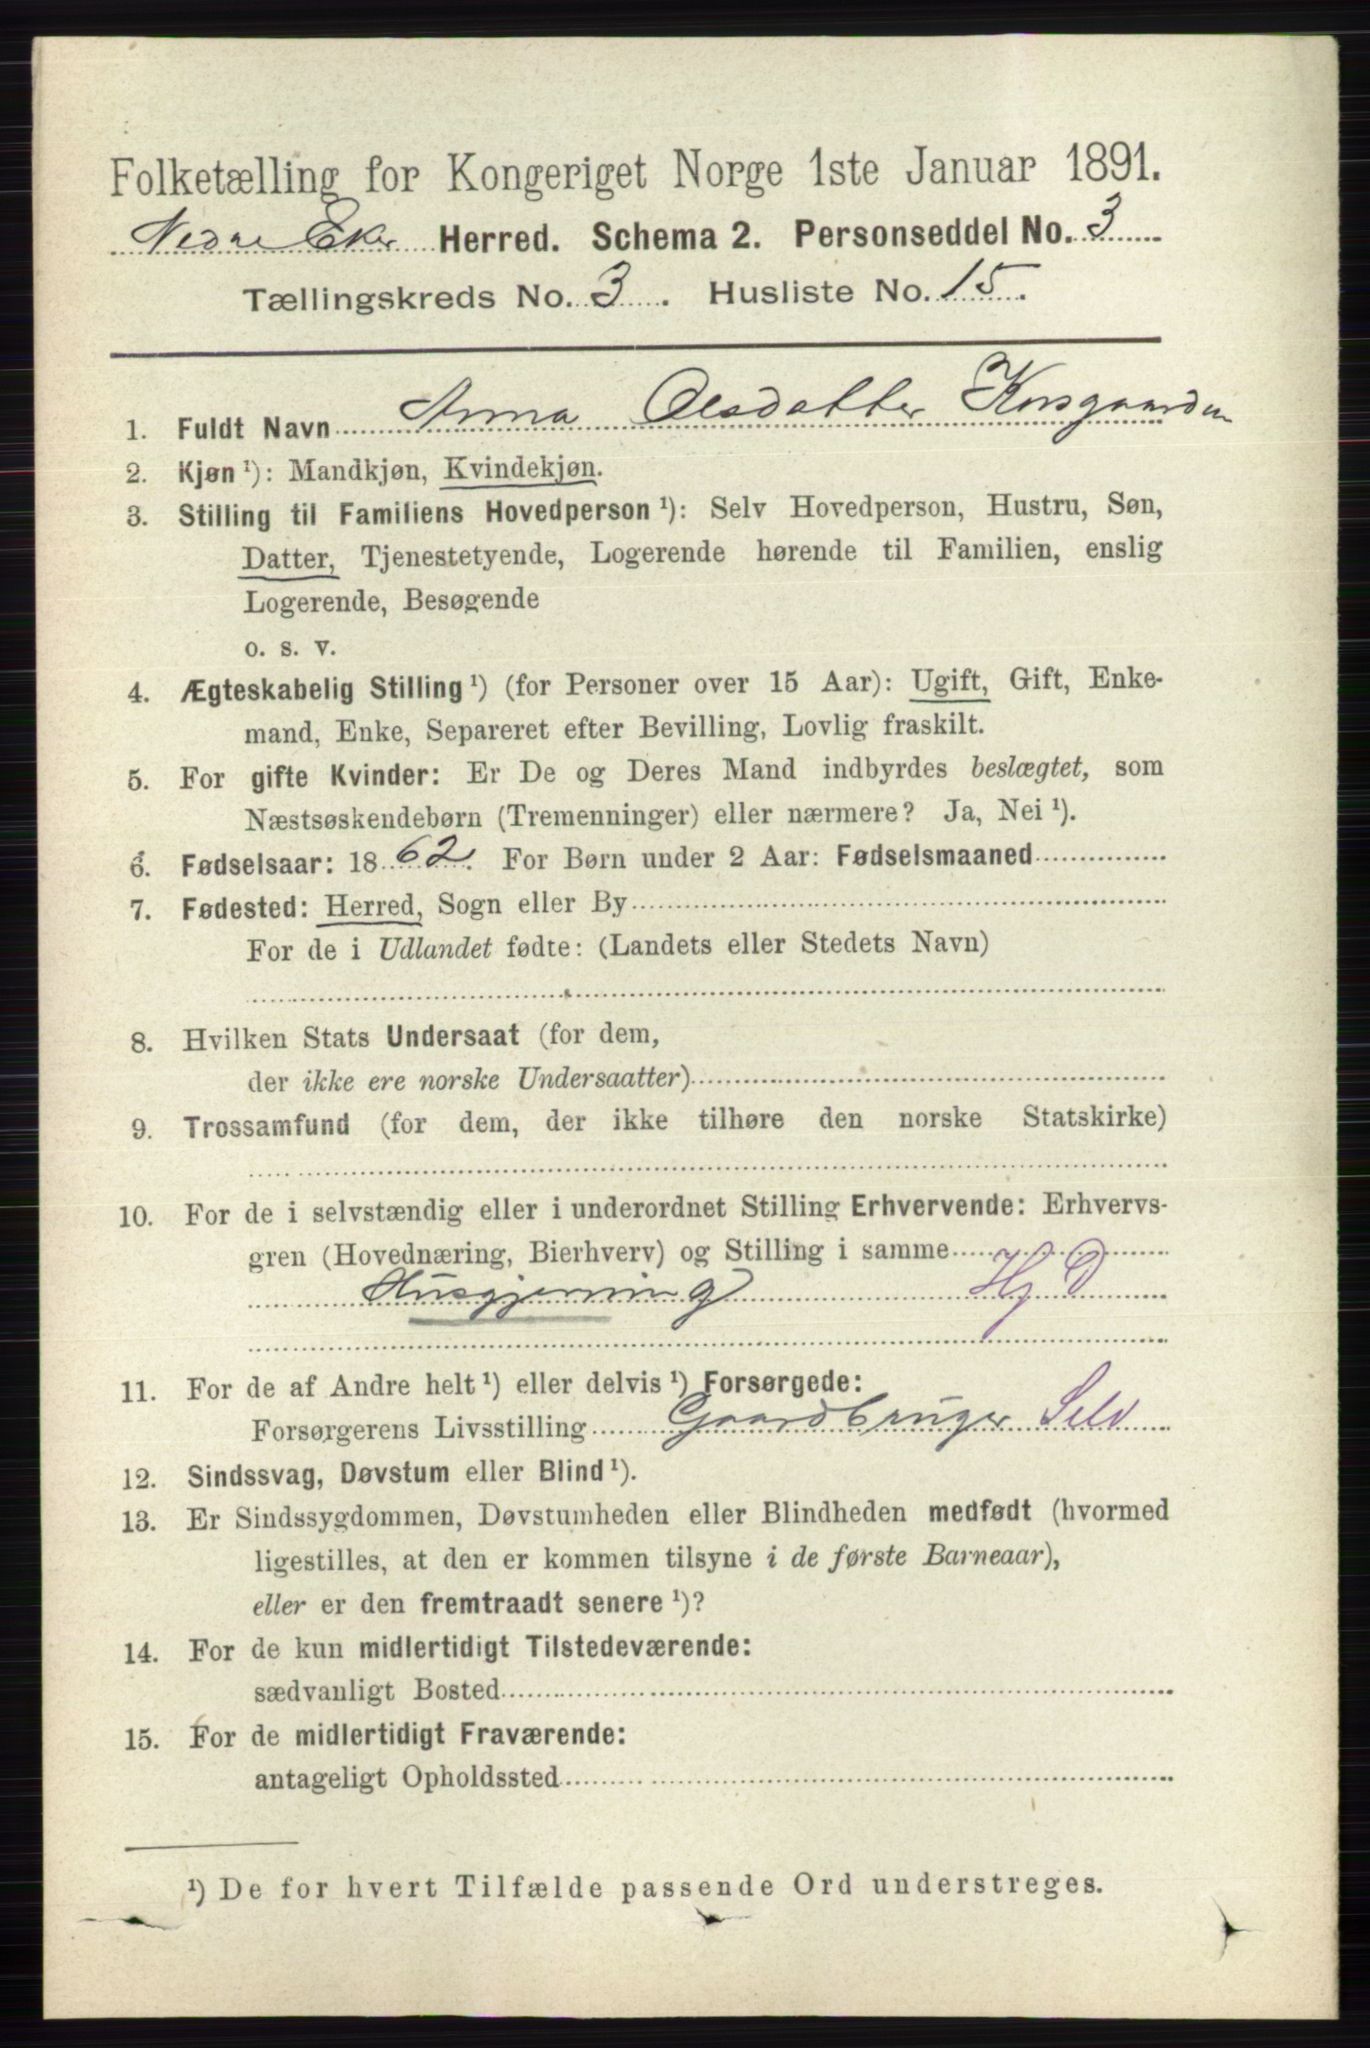 Folketælling for Kongeriget Norge 1ste Januar 1891.
Nedre Eker Herred. Schema 2. Personseddel No. 3
Tællingskreds No. 3. Husliste No. 15.
1. Fuldt Navn Anna Olsdatter Korsgaarden
2. Kjøn ¹): Mandkjøn, Kvindekjøn.
3. Stilling til Familiens Hovedperson ¹): Selv Hovedperson, Hustru, Søn,
Datter, Tjenestetyende, Logerende hørende til Familien, enslig
Logerende, Besøgende
o. s. v.
4. Ægteskabelig Stilling ¹) (for Personer over 15 Aar): Ugift, Gift, Enke-
mand, Enke, Separeret efter Bevilling, Lovlig fraskilt.
5. For gifte Kvinder: Er De og Deres Mand indbyrdes beslægtet, som
Næstsøskendebørn (Tremenninger) eller nærmere? Ja, Nei ¹).
6. Fødselsaar: 1862. For Børn under 2 Aar: Fødselsmaaned
7. Fødested: Herred, Sogn eller By
For de i Udlandet fødte: (Landets eller Stedets Navn)
8. Hvilken Stats Undersaat (for dem,
der ikke ere norske Undersaatter)
9. Trossamfund (for dem, der ikke tilhøre den norske Statskirke)
10. For de i selvstændig eller i underordnet Stilling Erhvervende: Erhvervs-
gren (Hovednæring, Bierhverv) og Stilling i samme
Husgjerning Hj D
11. For de af Andre helt ¹) eller delvis ¹) Forsørgede:
Forsørgerens Livsstilling Gaardbruger Selv
12. Sindssvag, Døvstum eller Blind ¹).
13. Er Sindssygdommen, Døvstumheden eller Blindheden medfødt (hvormed
ligestilles, at den er kommen tilsyne i de første Barneaar),
eller er den fremtraadt senere ¹)?
14. For de kun midlertidigt Tilstedeværende:
sædvanligt Bosted
15. For de midlertidigt Fraværende:
antageligt Opholdssted
¹) De for hvert Tilfælde passende Ord understreges.